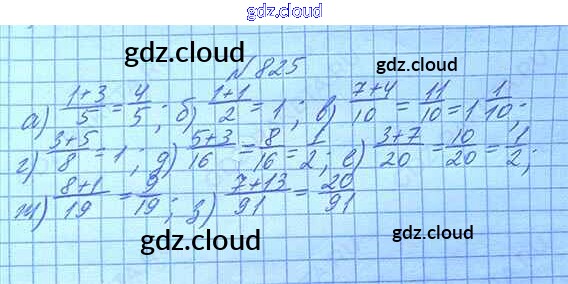 gdz.cloud
gdz.cloud gdz.cloud
№ 825
а) (1+3)/5 = 4/5; б) (1+1)/2 = 1; в) (7+4)/10 = 11/10 = 1 1/10;
г) (3+5)/8 = 1; д) (5+3)/16 = 8/16 = 1/2; е) (3+7)/20 = 10/20 = 1/2;
ж) (8+1)/19 = 9/19; з) (7+13)/91 = 20/91
gdz.cloud gdz.cloud